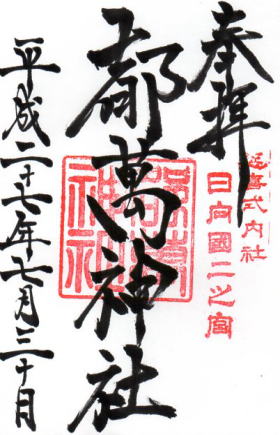 奉拝
延喜式内社
日向國二之宮
都萬神社
平成二十七年七月三十日